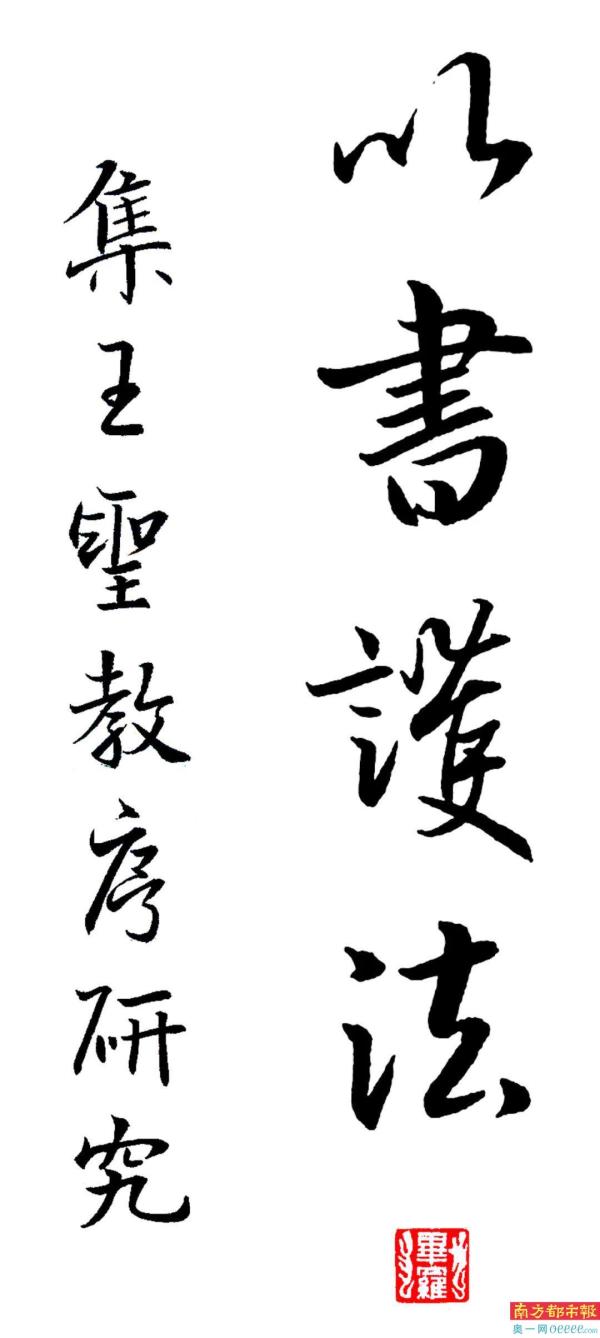 以書護法
集王聖教序研究
南方都市報
奥一网oeeee.com